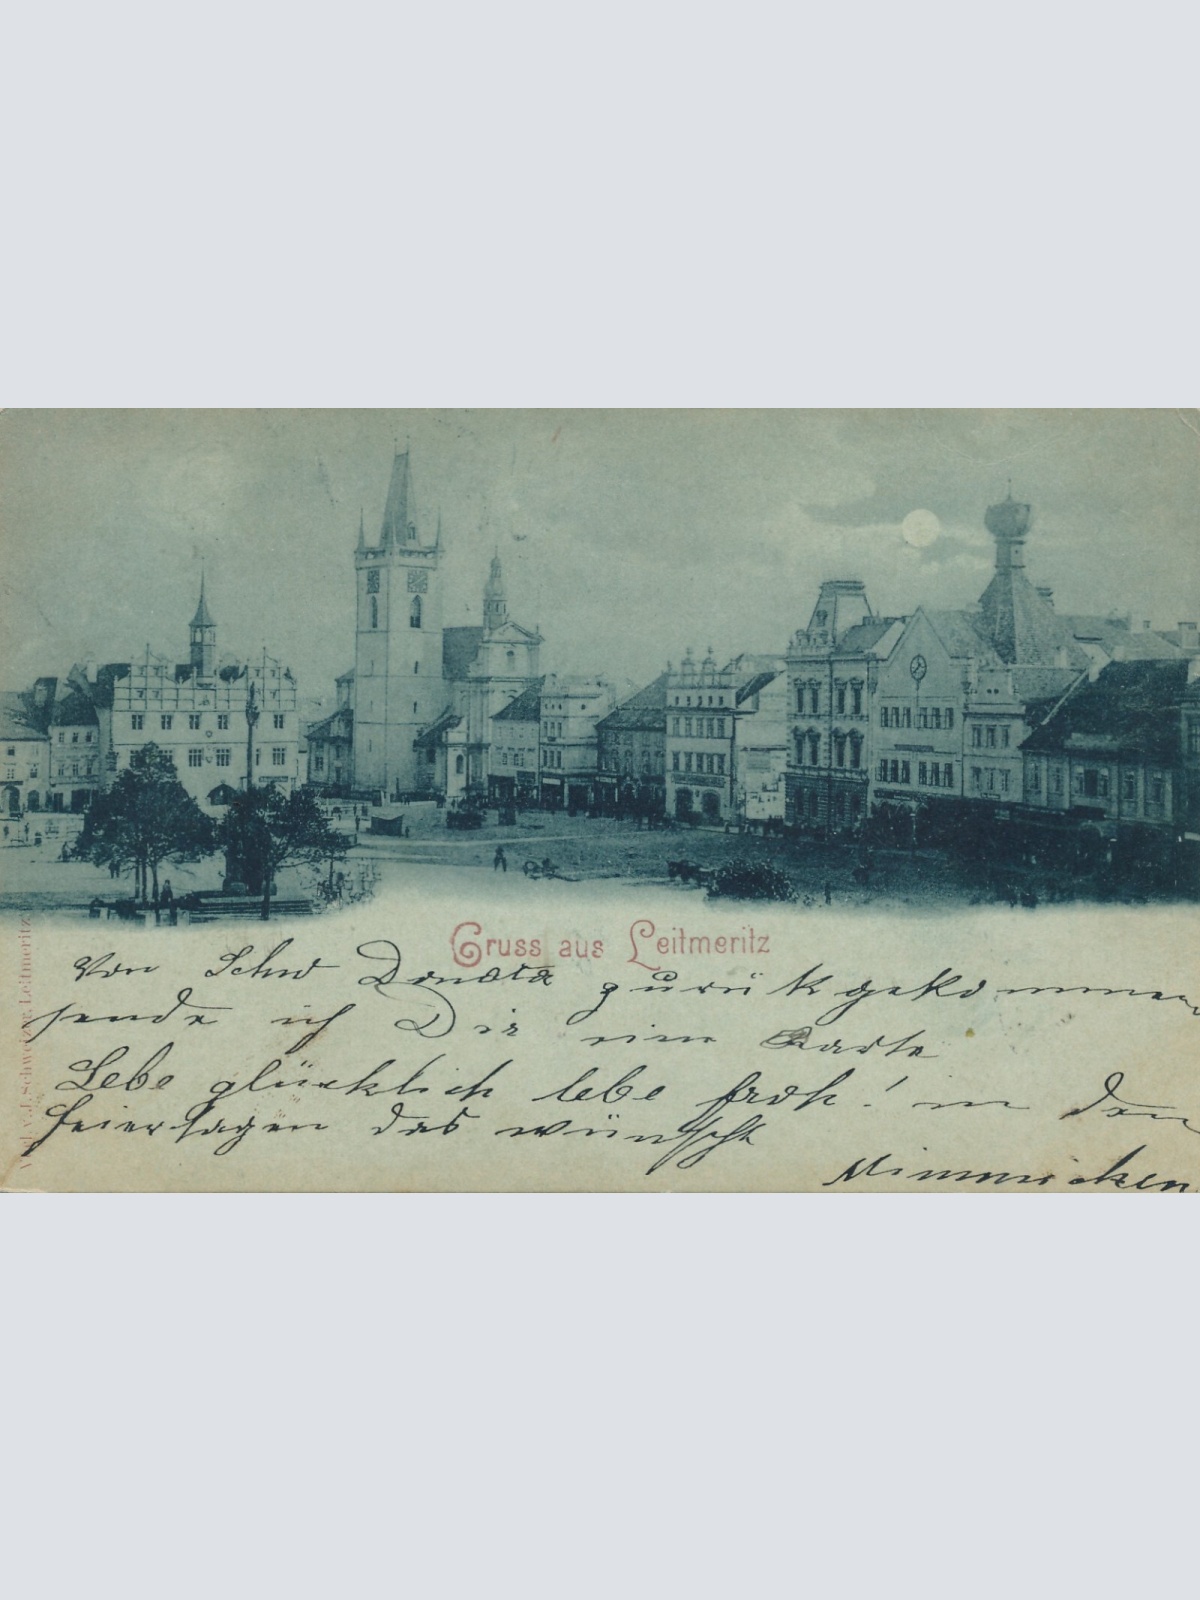 Gruss aus Leitmeritz
Von Donata zurükgekommen
sende ich Dir eine Karte
Lebe glücklich lebe froh! in den
Feiertagen das wünscht
Verl. v. J. Schweitzer, Leitmeritz